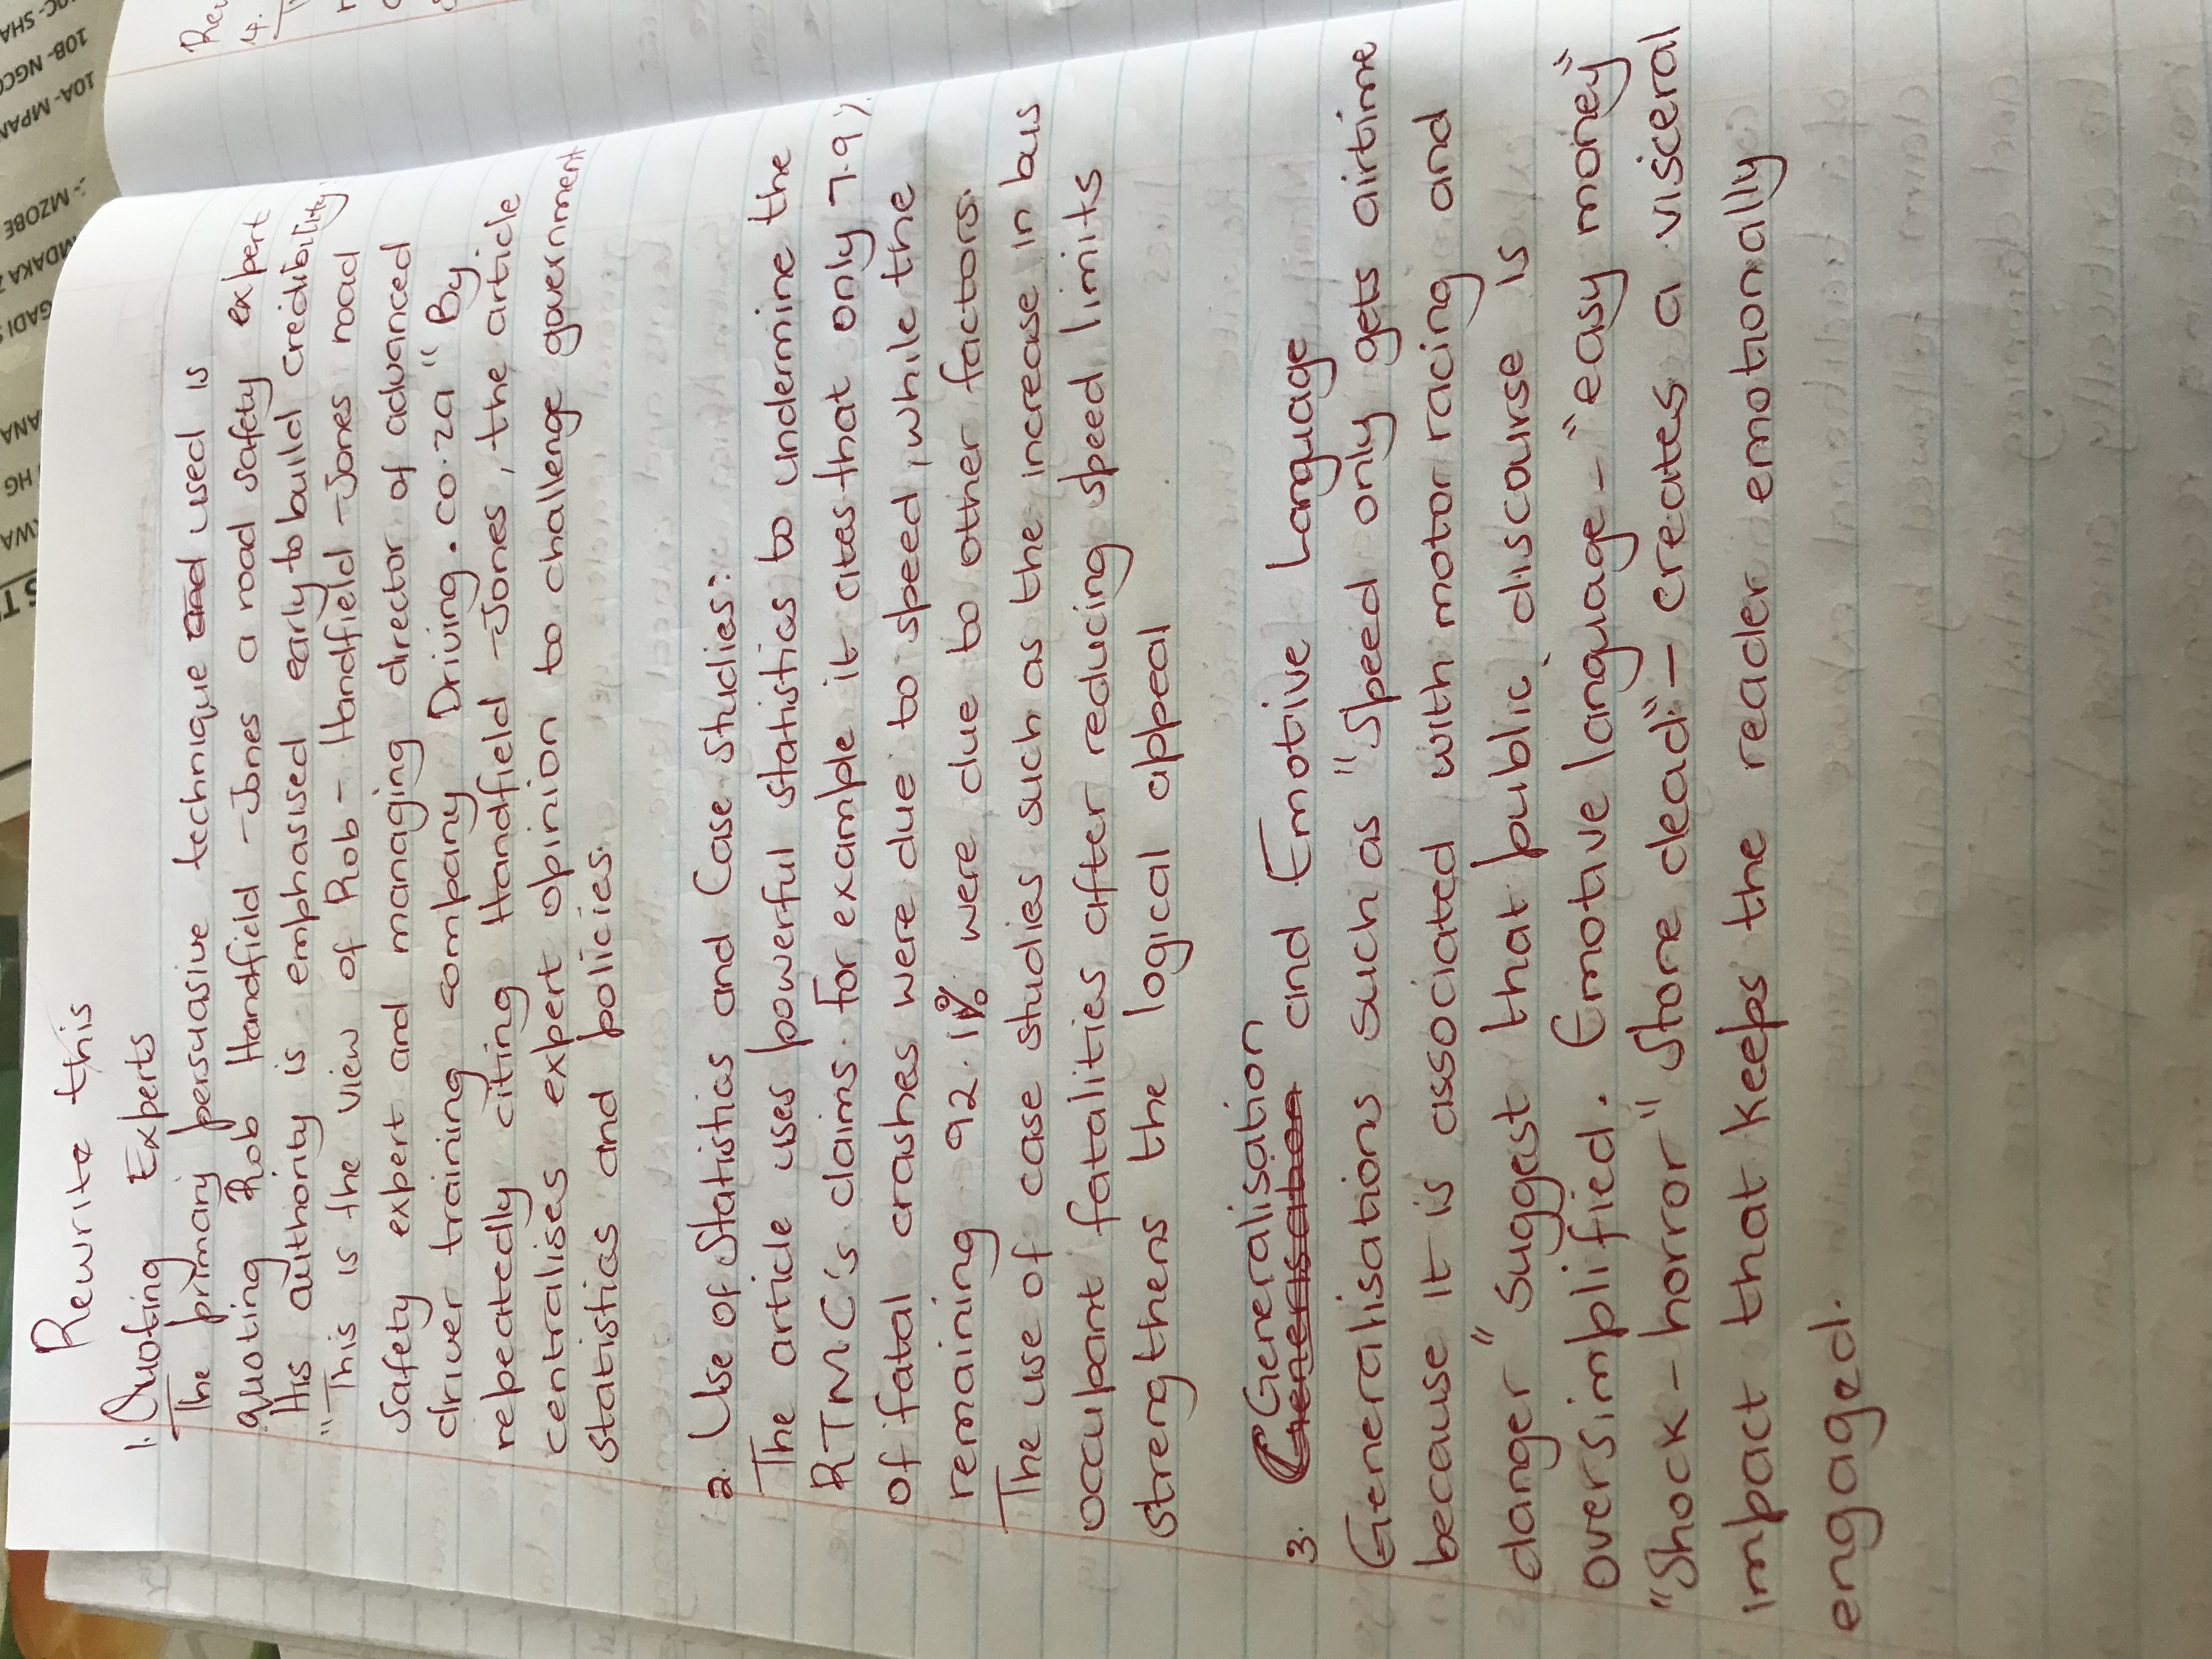 Rewrite this
1. Quoting Experts
The primary persuasive technique and used is
quoting Rob Handfield-Jones a road safety expert
His authority is emphasised early to build credibility
"This is the view of Rob-Handfield-Jones road
safety expert and managing director of advanced
driver training company Driving.co.za" By
repeatedly citing Handfield-Jones, the article
centralises expert opinion to challenge government
statistics and policies.
2. Use of Statistics and Case Studies:
The article uses powerful statistics to undermine the
RTMC's claims. For example it cites that only 7.9%
of fatal crashes were due to speed, while the
remaining 92.1% were due to other factors.
The use of case studies such as the increase in bus
occupant fatalities after reducing speed limits
strengthens the logical appeal
3. Generalisation and Emotive Language
Generalisations such as "Speed only gets airtime
because it is associated with motor racing and
danger" suggest that public discourse is
oversimplified. Emotive language - "easy money"
"Shock-horror" Stone dead" - creates a visceral
impact that keeps the reader emotionally
engaged.
Rew
4.
10C- SHA
10B- NGCO
10A- MPAN
MZOBE
MDAKA
GADI
ANA
HG
KWA
ST